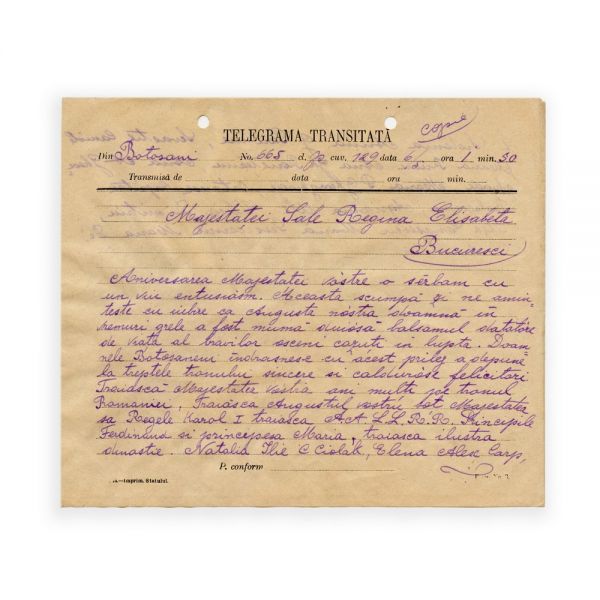 copie
TELEGRAMA TRANSITATĂ
Din Botosani No. 665 d. 70 cuv. 129 data 6/ ora 1 min. 30
Transmisă de data ora min.
Majestaței Sale Regina Elisabeta
Bucuresci
Aniversarea Majestatei Vostre o sĕrbam cu
un viu entusiasm. Aceasta scumpă zi ne amin-
teste cu iubire ca Augusta nóstra dóamnă in
vremuri grele a fost mumă duiósă balsamul datatóre
de viată al bravilor osceni cazuti in lupta. Doam
nele Botosanene indrasnesc cu acest prilej a depune
la treptele tronului sincere si calduróse felicitari
Traiĕscă Majestatea Vostra ani multi pe tronul
Romaniei. Traiésca Augustul vostru Sot Majestatea
sa Regele Karol I traiasca A.A. L.L. R.R. Principile
Ferdinand si principesa Maria, traiasca ilustra
dinastie. Natalia Ilie C Ciolak, Elena Alex Carp,
P. conform
—Imprim. Statului.